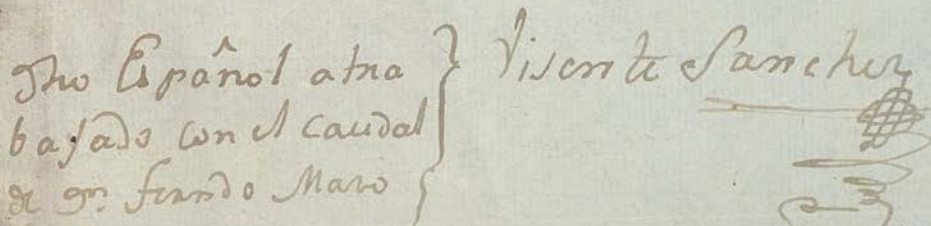 dho Español a tra
bajado con el caudal
de dn. fernando Maro
Visente Sanchez